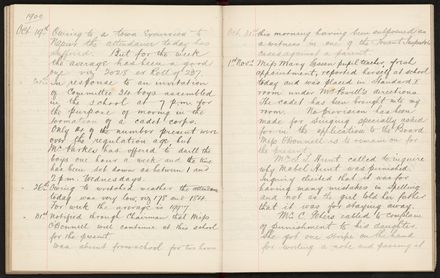 1900
Oct. 19th Owing to a Town Excursion to
Napier the attendance today has
suffered. But for the week
the average has been a good
one viz 202.8 on Roll of 237.
In response to an invitation
of Committee 34 boys assembled
in the school at 7 p.m. for
the purpose of moving in the
formation of a cadet corps.
Only 22 of the number present were
over the regulation age but
Mr Parkes had offered to drill the
boys one hour a week and the time
has been set down as between 1 and
2 p.m. Wednesdays.
26th Owing to wretched weather the attendance
today was very low, viz 178 and 184.
For week the average is 199.7
31st Notified through Chairman that Miss
O'Connell will continue at this school
for the present.
Was absent from school for two hours
Oct. 31st this morning having been subpoenaed as
a witness in one of the Truant Inspector's
cases against a parent.
1st Nov. Miss Mary Green pupil teacher, fresh
appointment, reported herself at school
today and was placed in Standard 2
room under directions.
The cadet has been brought into my
room. No provision has been
made for Sewing specially asked
for in the application to the Board.
Miss O'Connell is to remain on for
the present.
Mr Hunt called to inquire
why Mabel Hunt was punished.
Inquiry elicited that it was for
having many mistakes in Spelling
and not as the girl told her father
that it was for staying away.
Mr C. called to complain
of punishment to his daughter.
She got one stripe on the hand
for writing a note and passing it